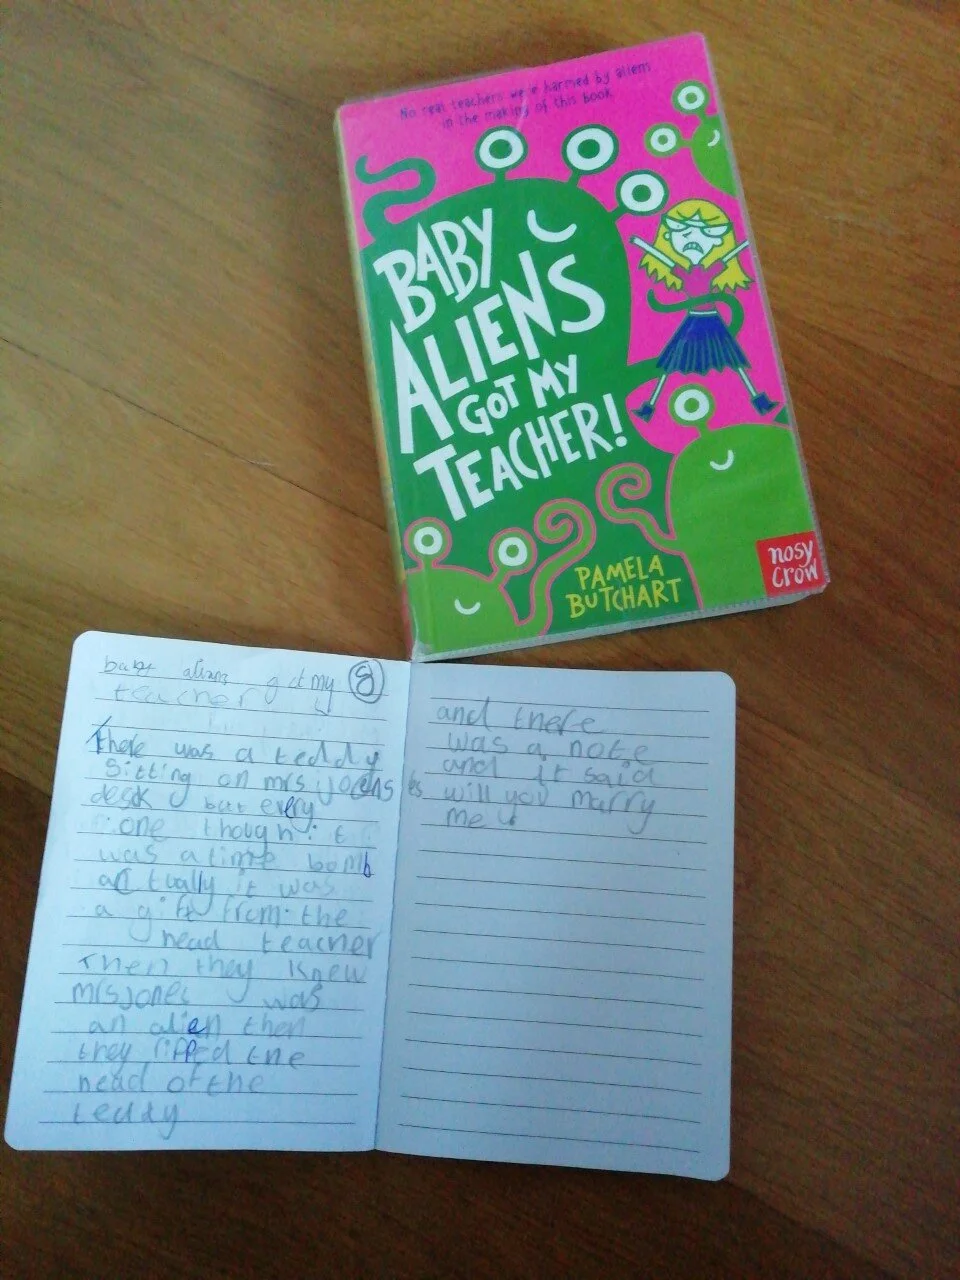 No real teachers were harmed by aliens
in the making of this book
BABY
ALIENS
GOT MY
TEACHER!
PAMELA
BUTCHART
nosy
crow
baby aliens got my
8
teacher
There was a teddy
Sitting on mrs
desk but every
one though it
was a time bomb
actually it was
a gift from the
head teacher
Then they knew
mrs jones was
an alien then
they ripped the
head of the
teddy
and there
was a note
and it said
will you marry
me